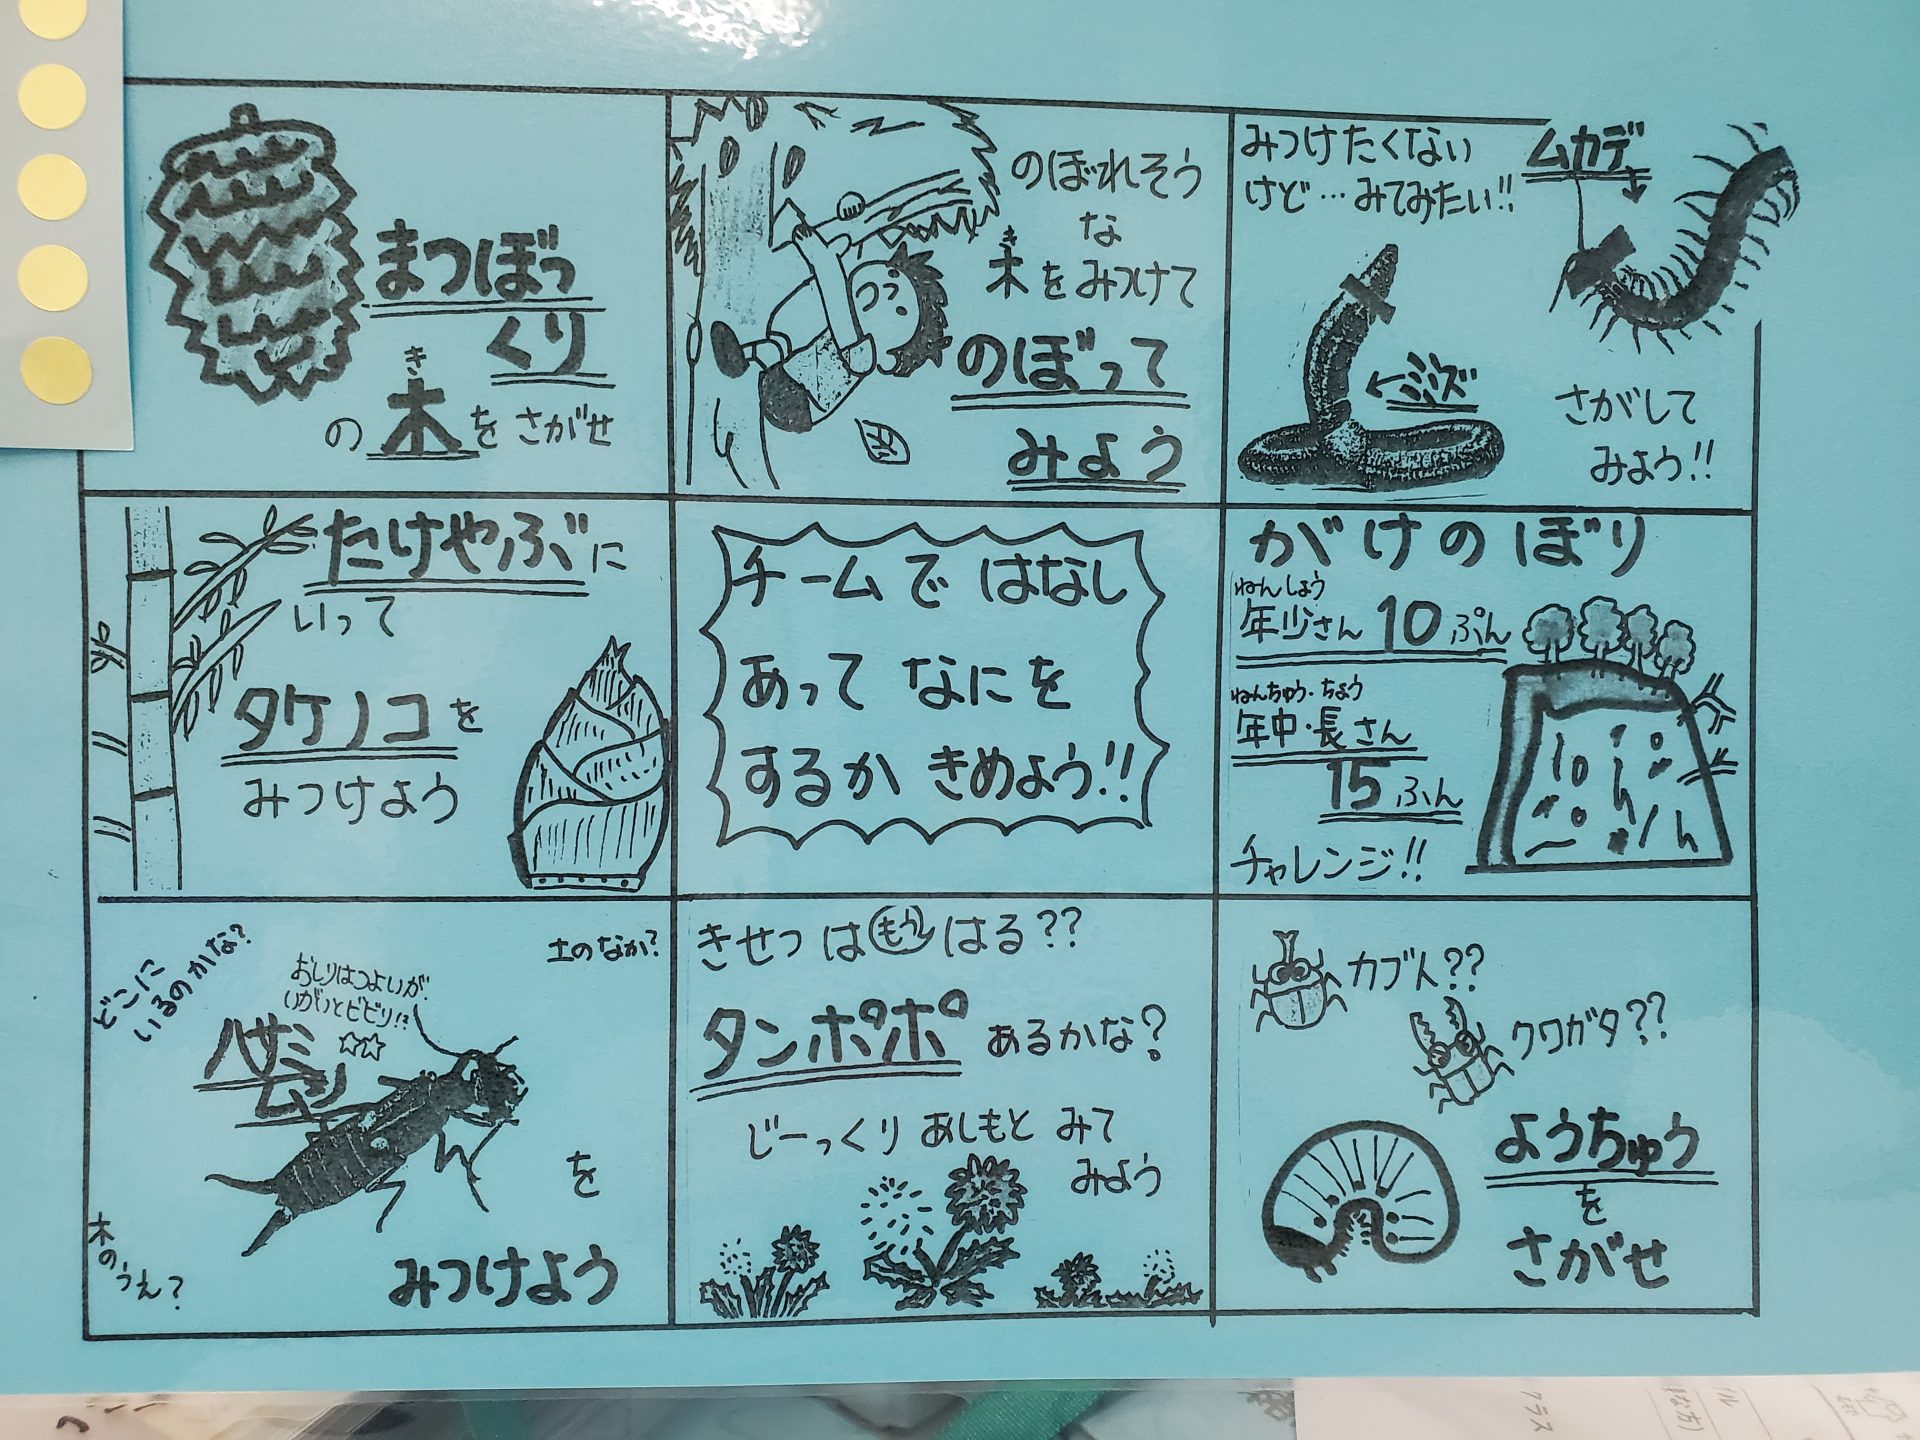 まつぼっ
くり
き
の木をさがせ
のぼれそう
な
き
木をみつけて
のぼって
みよう
みつけたくない
けど…みてみたい!!
ムカデ
←ミミズ
さがして
みよう!!
たけやぶに
いって
タケノコを
みつけよう
チームではなし
あってなにを
するかきめよう!!
がけのぼり
ねんしょう
年少さん 10ぷん
ねんちゅう・ちょう
年中・長さん
15ふん
チャレンジ!!
どこに
いるのかな?
土のなか?
おしりはつよいが
いがいとビビリ!?
ハサミ
ムシ
☆☆
を
木のうえ?
みつけよう
きせつはもうはる??
タンポポあるかな?
じーっくりあしもとみて
みよう
カブト??
クワガタ??
ようちゅう
を
さがせ
クラス